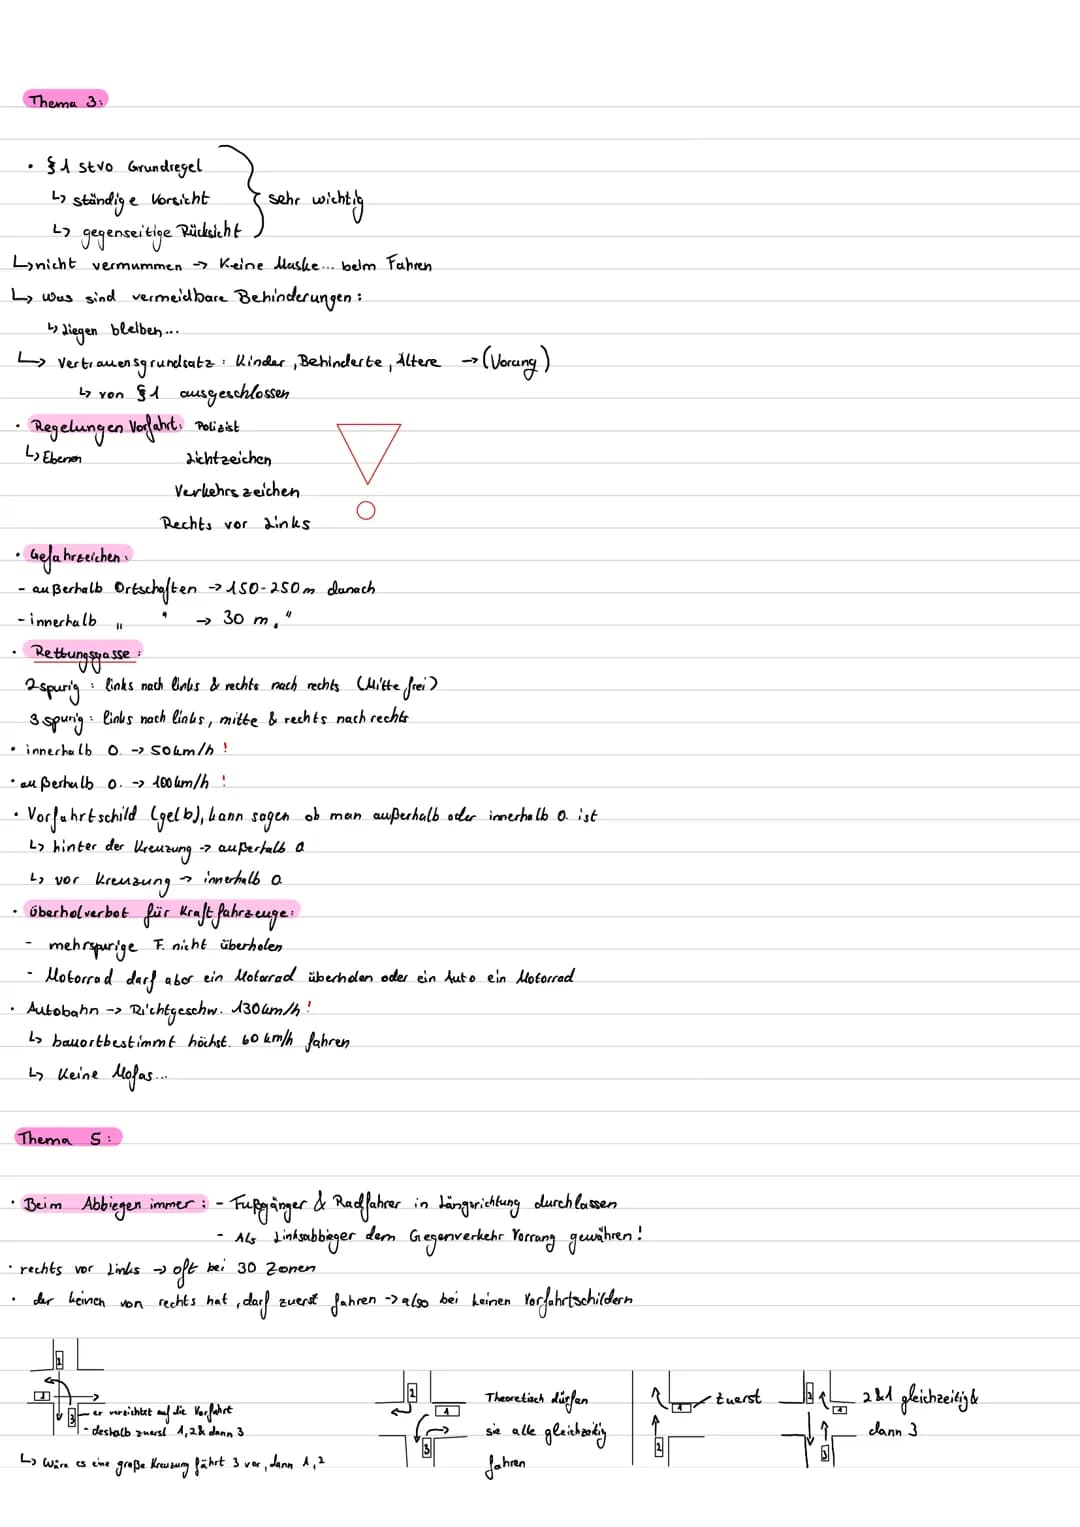 Thema 3:
• §1 StVO Grundregel
↳ ständige Vorsicht
sehr wichtig
↳ gegenseitige Rücksicht
↳ nicht vermummen → Keine Maske... beim Fahren
↳ Was sind vermeidbare Behinderungen:
↳ Liegen bleiben...
↳ Vertrauensgrundsatz: Kinder, Behinderte, Ältere → (Vorang)
↳ von §1 ausgeschlossen
• Regelungen Vorfahrt: Polizist
↳ Ebenen Lichtzeichen
Verkehrszeichen
Rechts vor Links
• Gefahrzeichen:
- außerhalb Ortschaften → 150-250m danach
- innerhalb " " → 30 m, "
• Rettungsgasse:
2spurig: links nach links & rechts nach rechts (Mitte frei)
3spurig: links nach links, mitte & rechts nach rechts
• innerhalb O. → 50km/h !
• außerhalb O. → 100km/h !
• Vorfahrtschild (gelb), kann sagen ob man außerhalb oder innerhalb O. ist
↳ hinter der Kreuzung → außerhalb O
↳ vor Kreuzung → innerhalb O.
• Überholverbot für Kraftfahrzeuge:
- mehrspurige F. nicht überholen
- Motorrad darf aber ein Motorrad überholen oder ein Auto ein Motorrad
• Autobahn → Richtgeschw. 130km/h !
↳ bauortbestimmt höchst. 60 km/h fahren
↳ Keine Mofas...
Thema 5:
• Beim Abbiegen immer: - Fußgänger & Radfahrer in Längsrichtung durchlassen
- Als Linksabbieger dem Gegenverkehr Vorrang gewähren!
• rechts vor Links → oft bei 30 Zonen
• der keinen von rechts hat, darf zuerst fahren → also bei keinen Vorfahrtschildern
2
1
3
- er verzichtet auf die Vorfahrt
- deshalb zuerst 1, 2 & dann 3
↳ Wäre es eine große Kreuzung fährt 3 vor, dann 1, 2
2
1
3
Theoretisch dürfen
sie alle gleichzeitig
fahren
1
2
zuerst
2
1
3
2&1 gleichzeitig &
dann 3